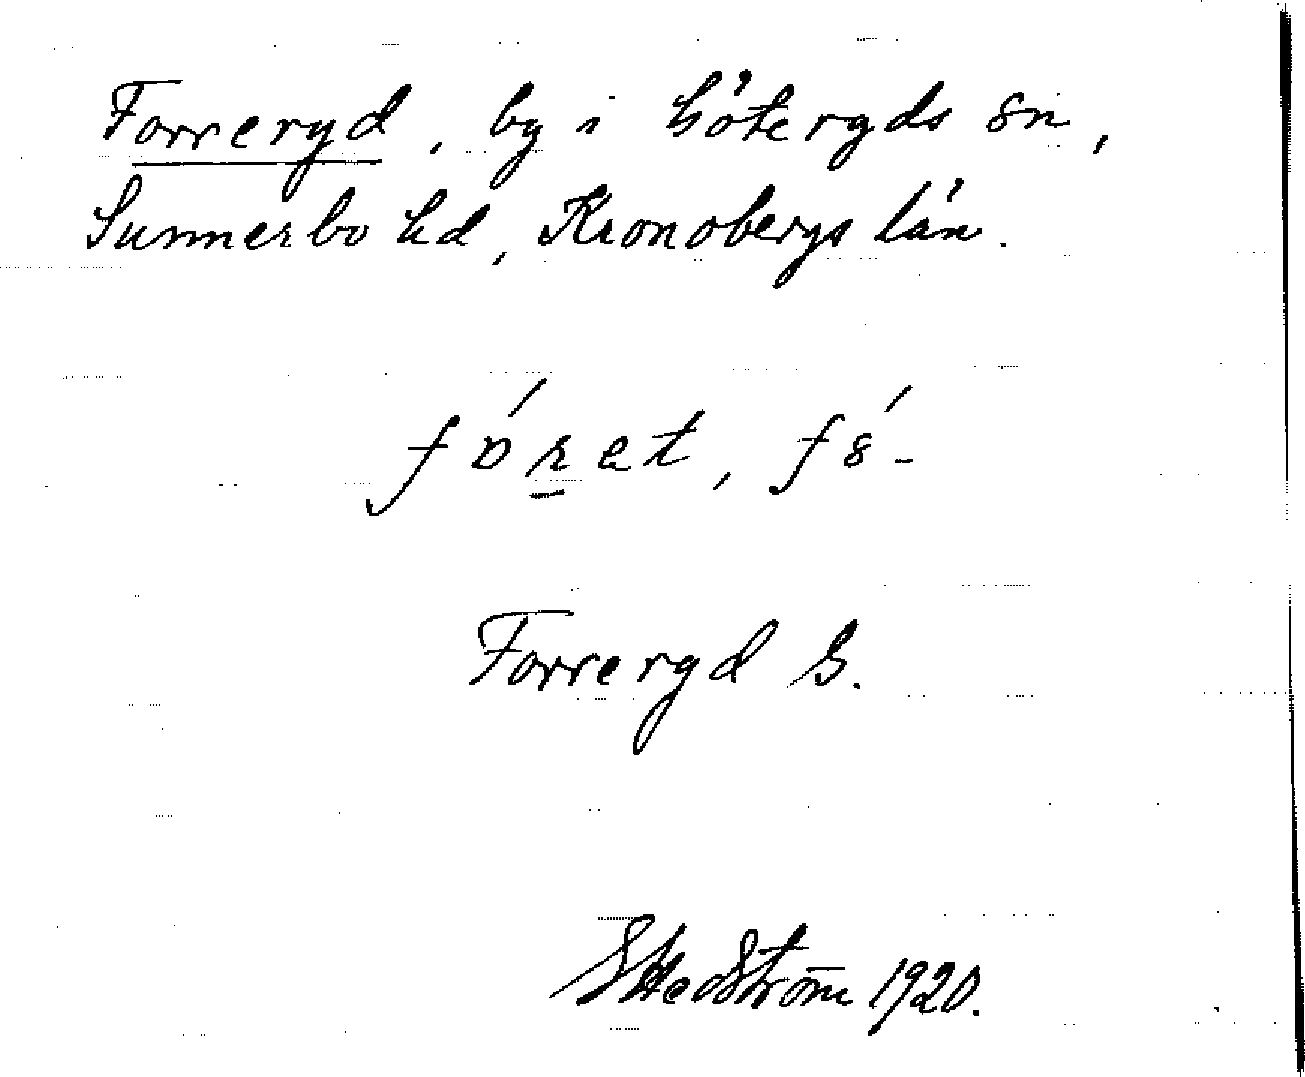 Forreryd, by i Göteryds sn,
Sunnerbo hd, Kronobergs län.
fóret, fó-
Forreryd G.
SHedström 1920.